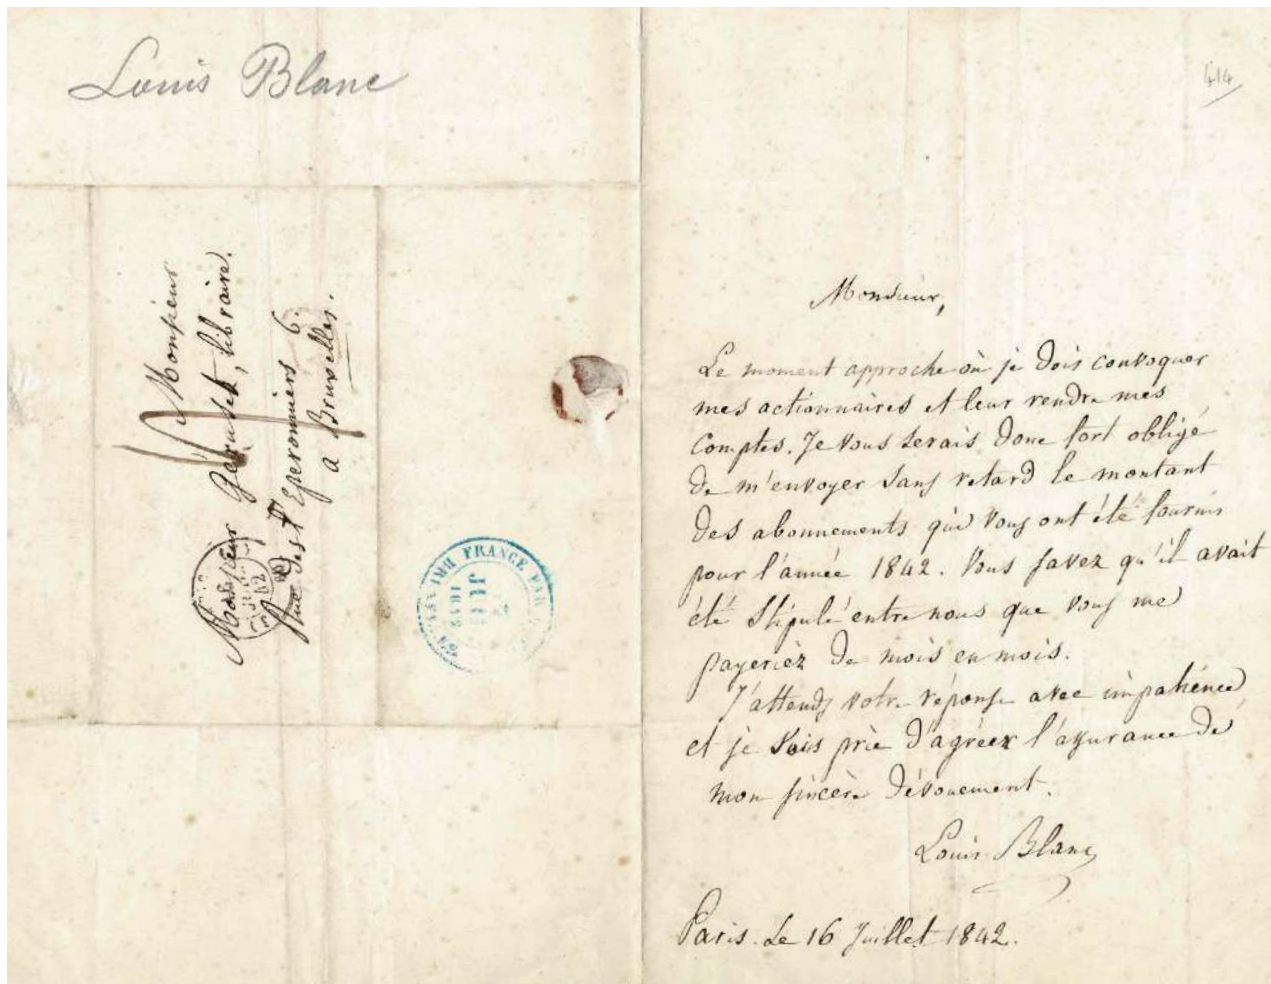 Louis Blanc
Monsieur
Monsieur Géruset, libraire.
Rue des Eperonniers 6.
a Bruxelles.
FRANCE PAR
414
Monsieur,
Le moment approche où je dois convoquer
mes actionnaires et leur rendre mes
comptes. Je vous serais donc fort obligé
de m'envoyer sans retard le montant
des abonnements qui vous ont été fournis
pour l'année 1842. Vous savez qu'il avait
été stipulé entre nous que vous me
payeriez de mois en mois.
J'attends votre réponse avec impatience,
et je vous prie d'agréer l'assurance de
mon sincère dévouement.
Louis Blanc
Paris. Le 16 Juillet 1842.